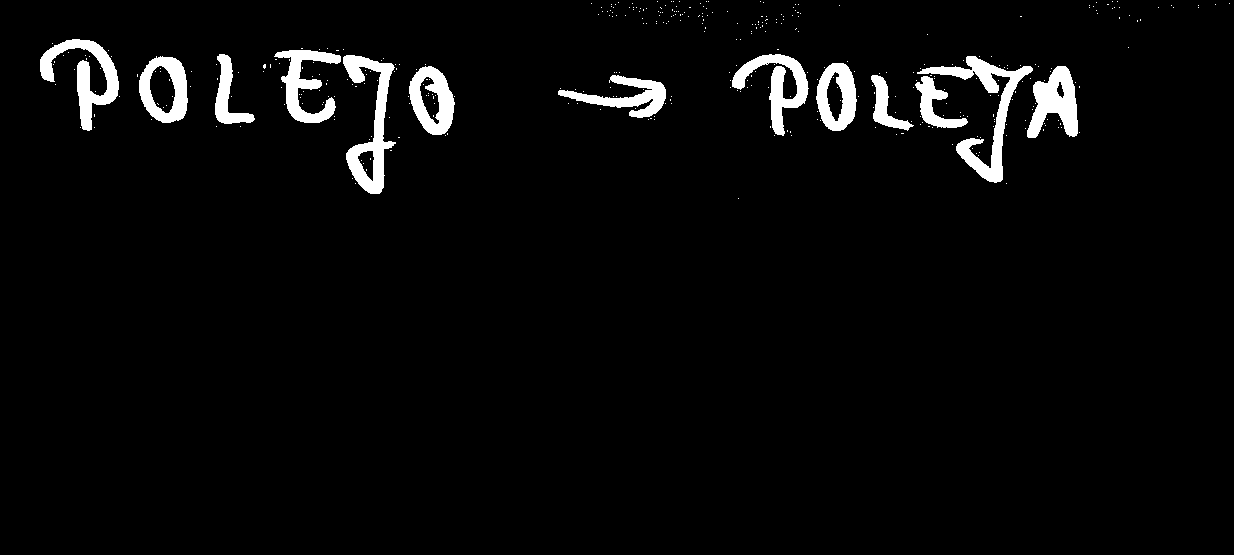 POLEJO → POLEJA